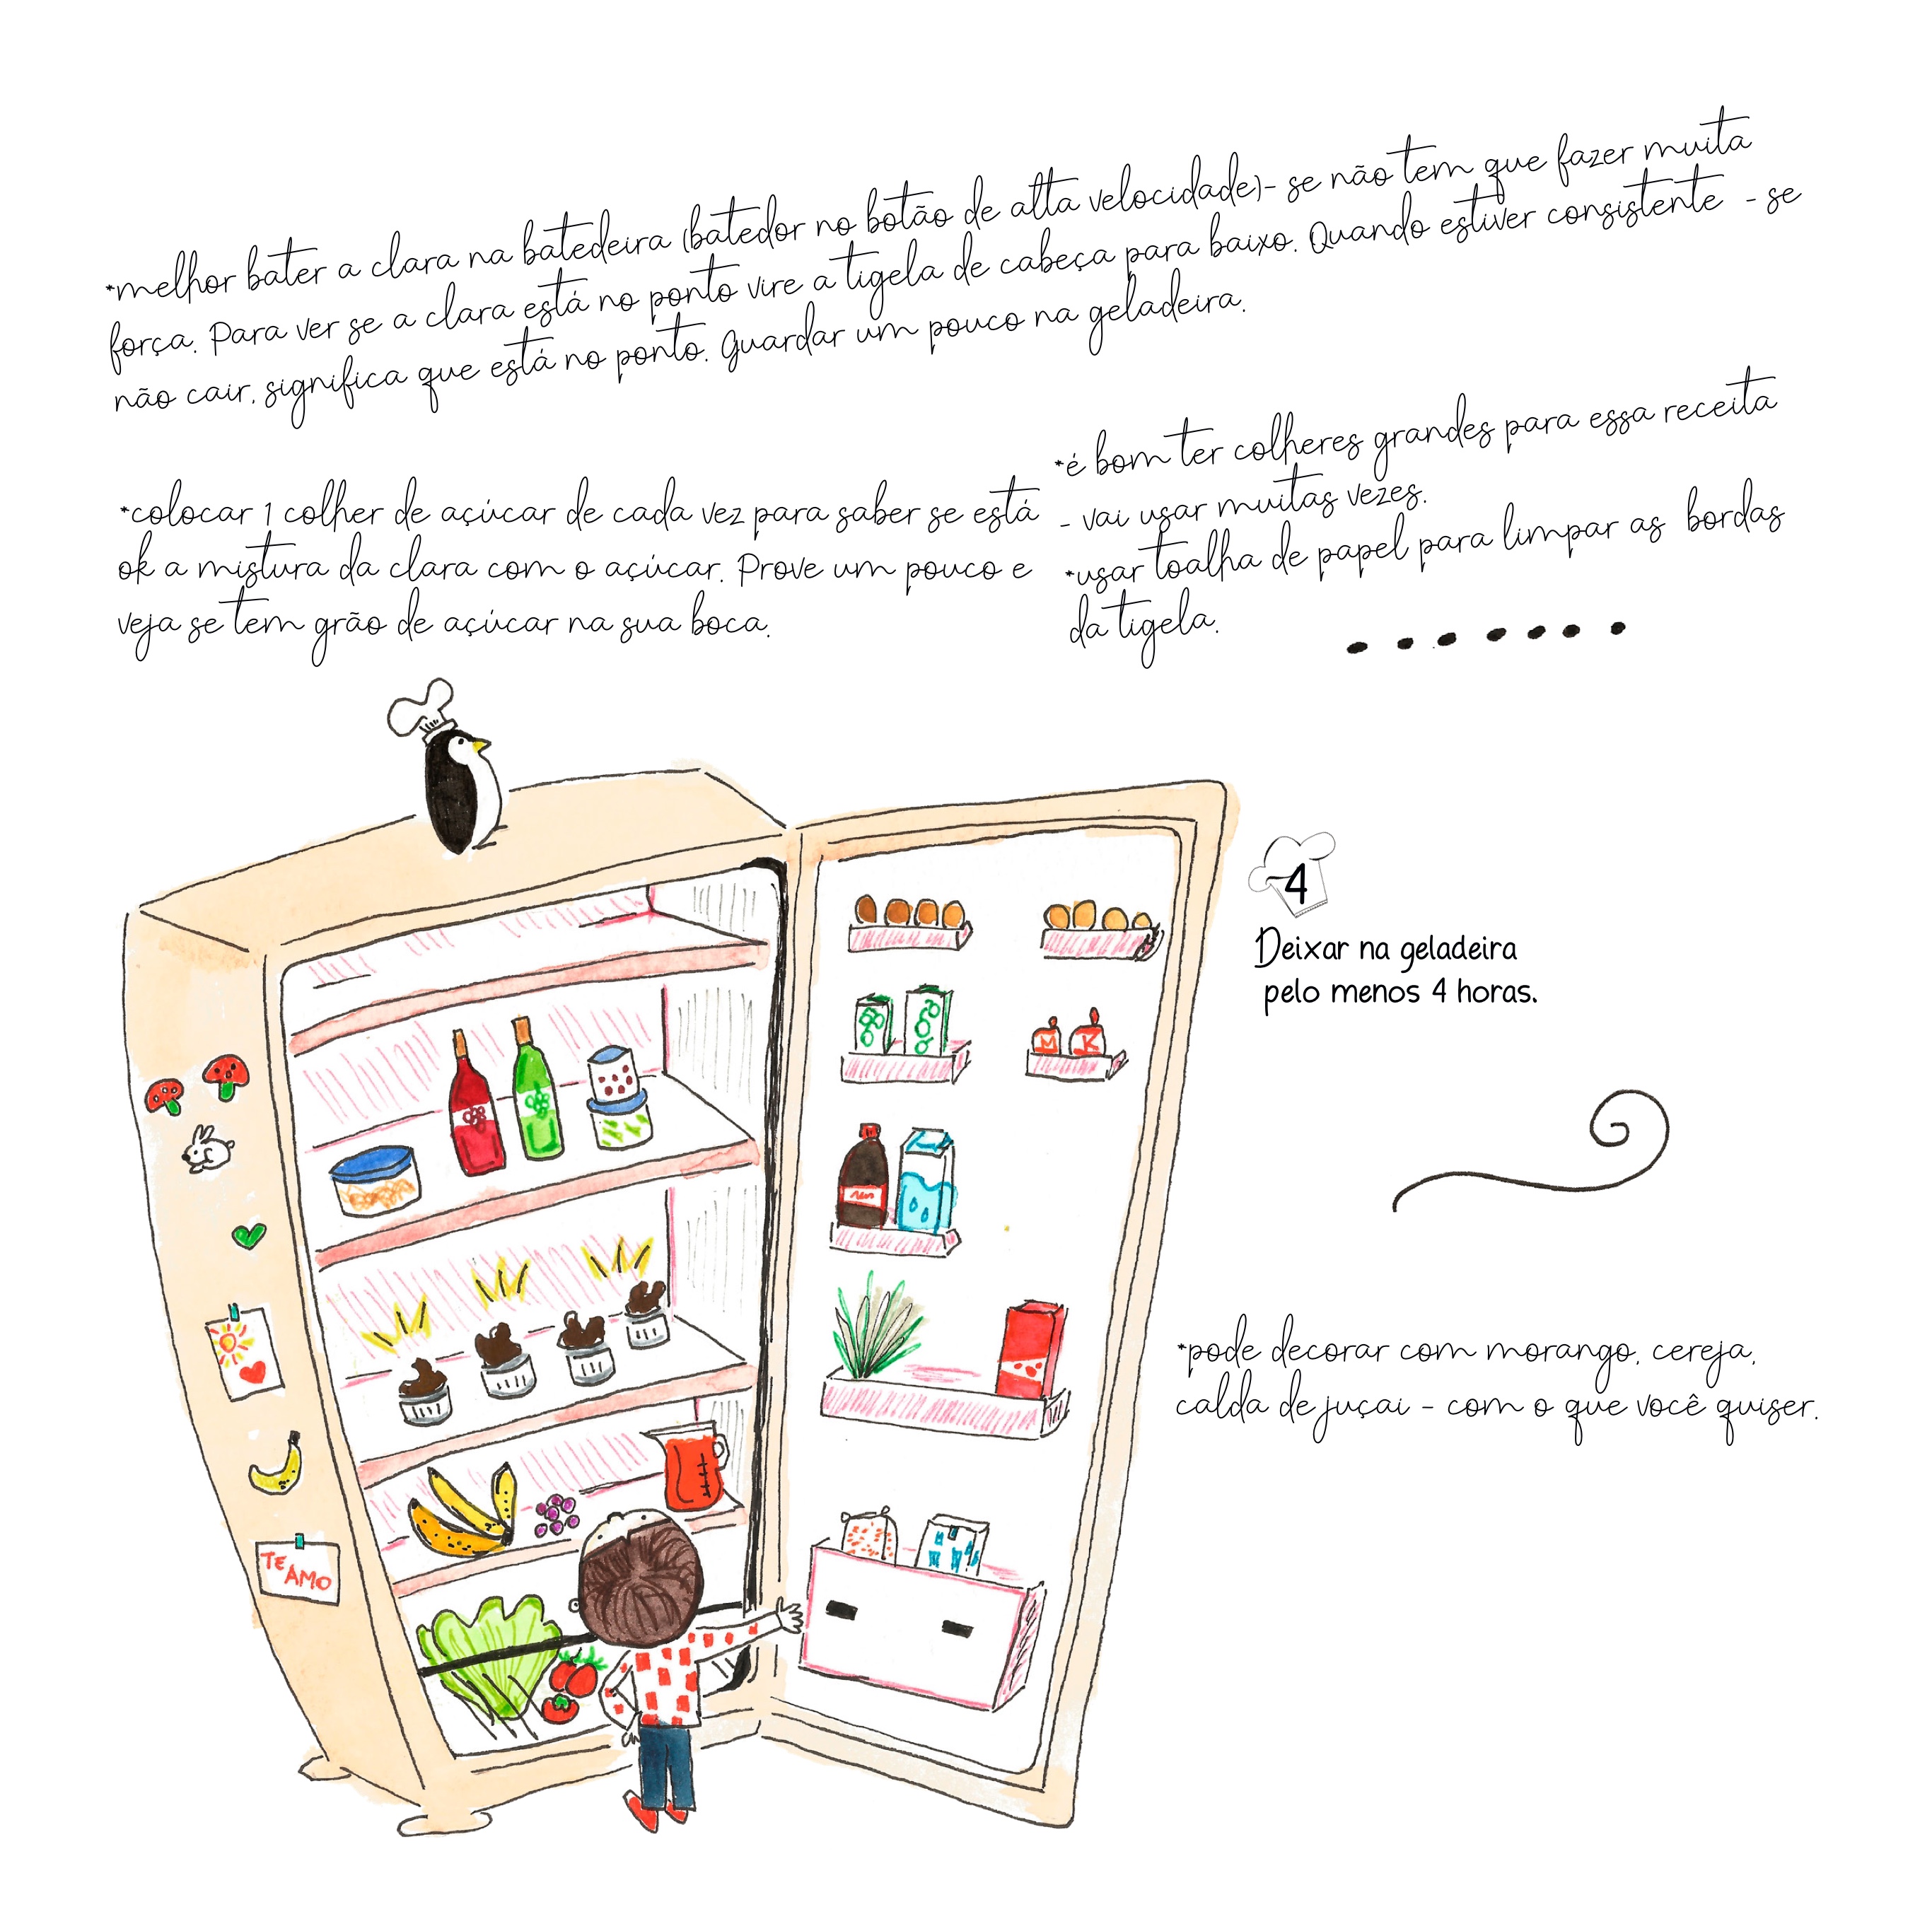 *melhor bater a clara na batedeira (batedor no botão de alta velocidade)- se não tem que fazer muita
força. Para ver se a clara está no ponto vire a tigela de cabeça para baixo. Quando estiver consistente - se
não cair, significa que está no ponto. Guardar um pouco na geladeira.
*colocar 1 colher de açúcar de cada vez para saber se está
ok a mistura da clara com o açúcar. Prove um pouco e
veja se tem grão de açúcar na sua boca.
*é bom ter colheres grandes para essa receita
- vai usar muitas vezes.
*usar toalha de papel para limpar as bordas
da tigela.
4
Deixar na geladeira
pelo menos 4 horas.
M K
*pode decorar com morango, cereja,
calda de juçai - com o que você quiser.
TE
AMO